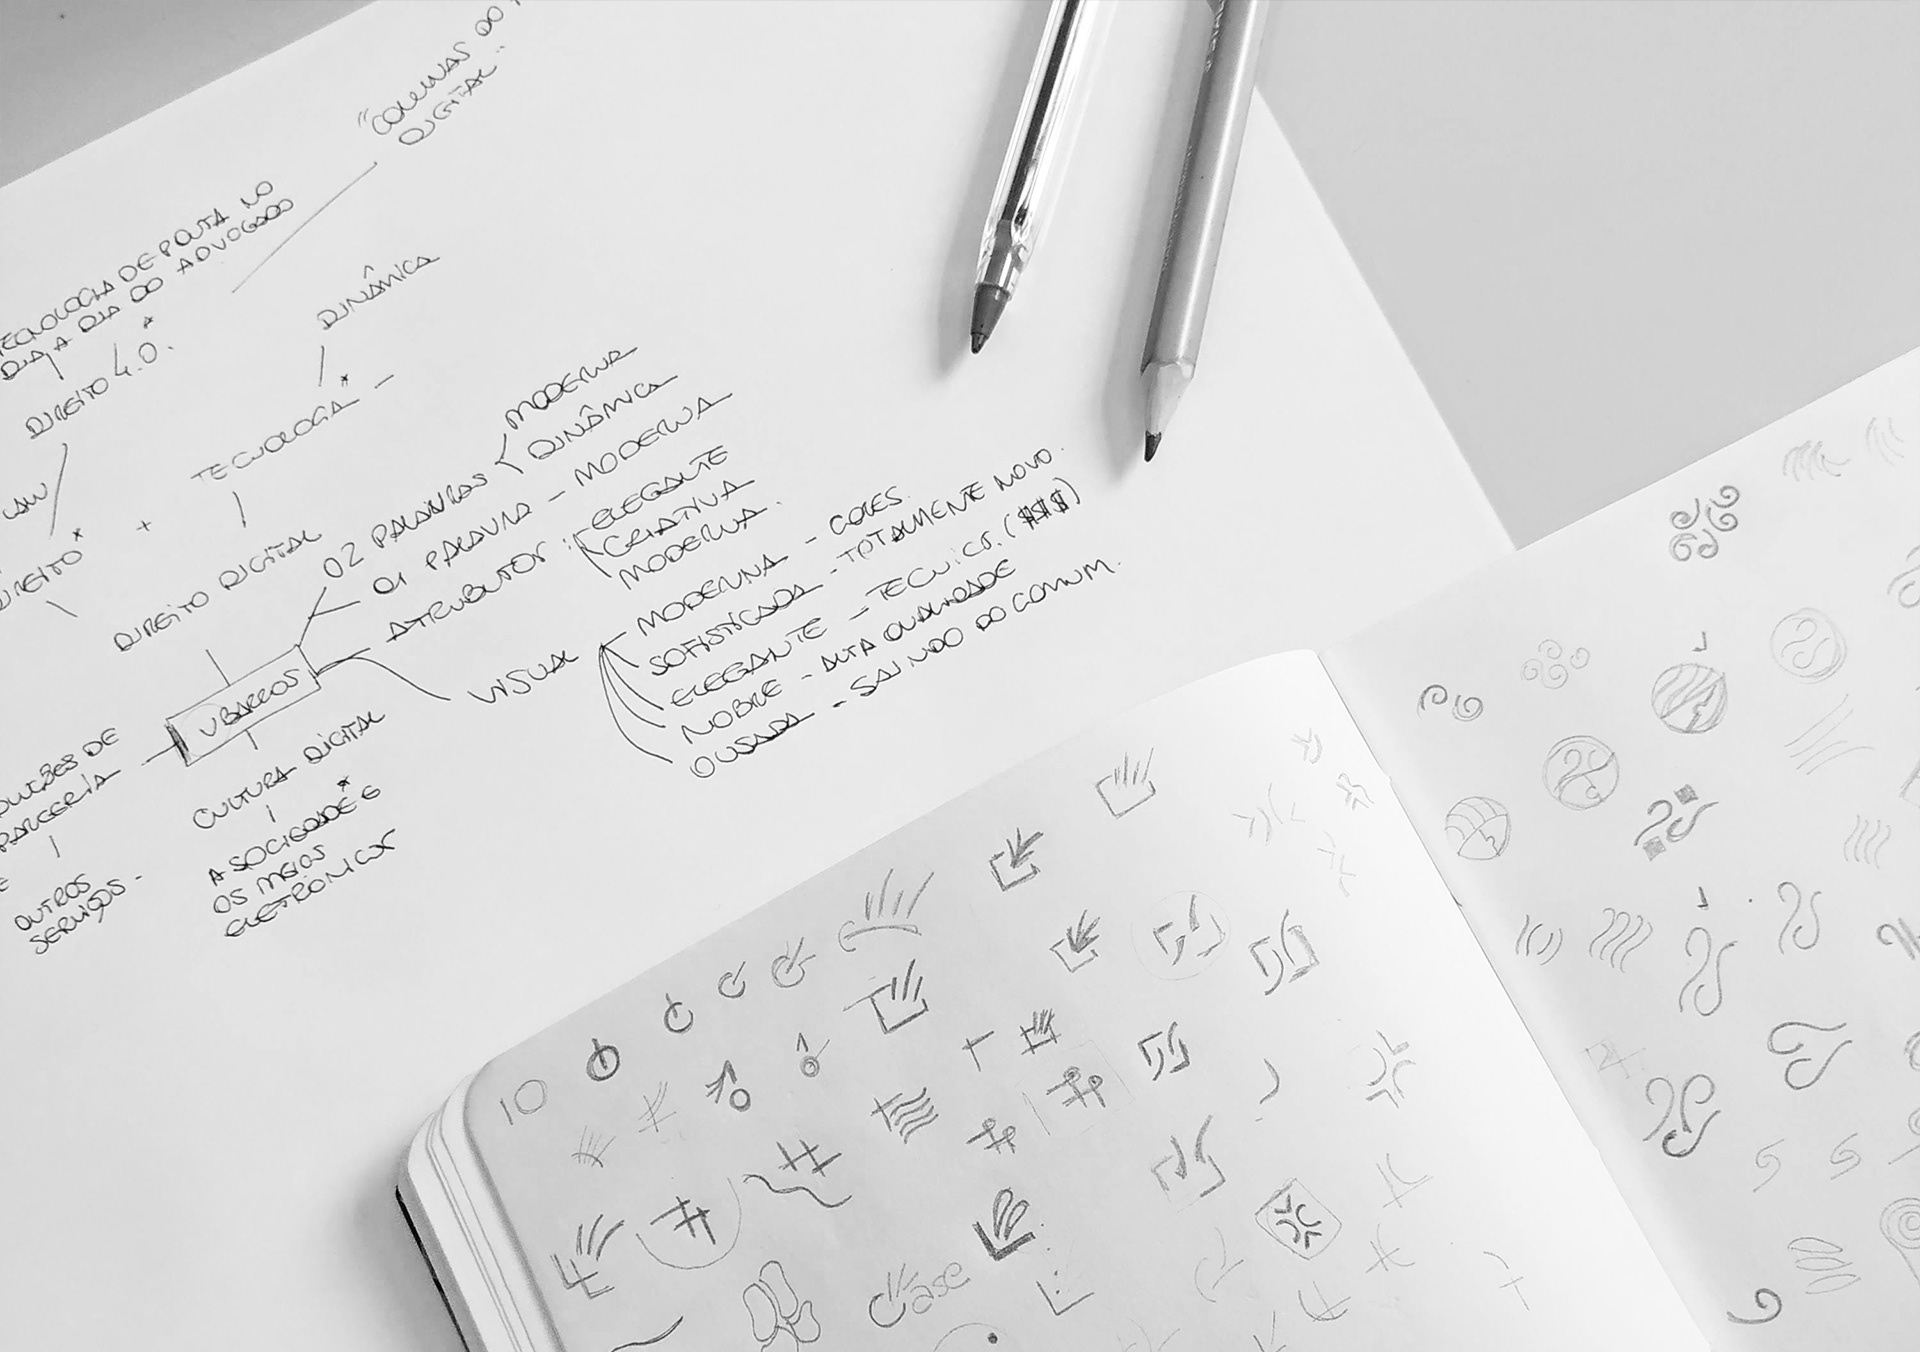 "COLUNAS DO
DIGITAL"
TECNOLOGIA DE PONTA NO
DIA A DIA DO ADVOGADO
DIREITO 4.0.
DINÂMICA
TECNOLOGIA* -
LAW
DIREITO* +
DIREITO DIGITAL
02 PALAVRAS
MODERNA
DINÂMICA
01 PALAVRA - MODERNA
ATRIBUTOS:
ELEGANTE
CRIATIVA
MODERNA.
VISUAL
MODERNA - CORES.
SOFISTICADA - TOTALMENTE NOVO.
ELEGANTE - TECNICS. ($$$)
NOBRE - ALTA QUALIDADE
OUSADA - SAINDO DO COMUM.
V BARROS
DE
PARCERIA
OUTROS
SERVIÇOS.
CULTURA DIGITAL
A SOCIEDADE* E
OS MEIOS
ELETRÔNICOS
10
ase